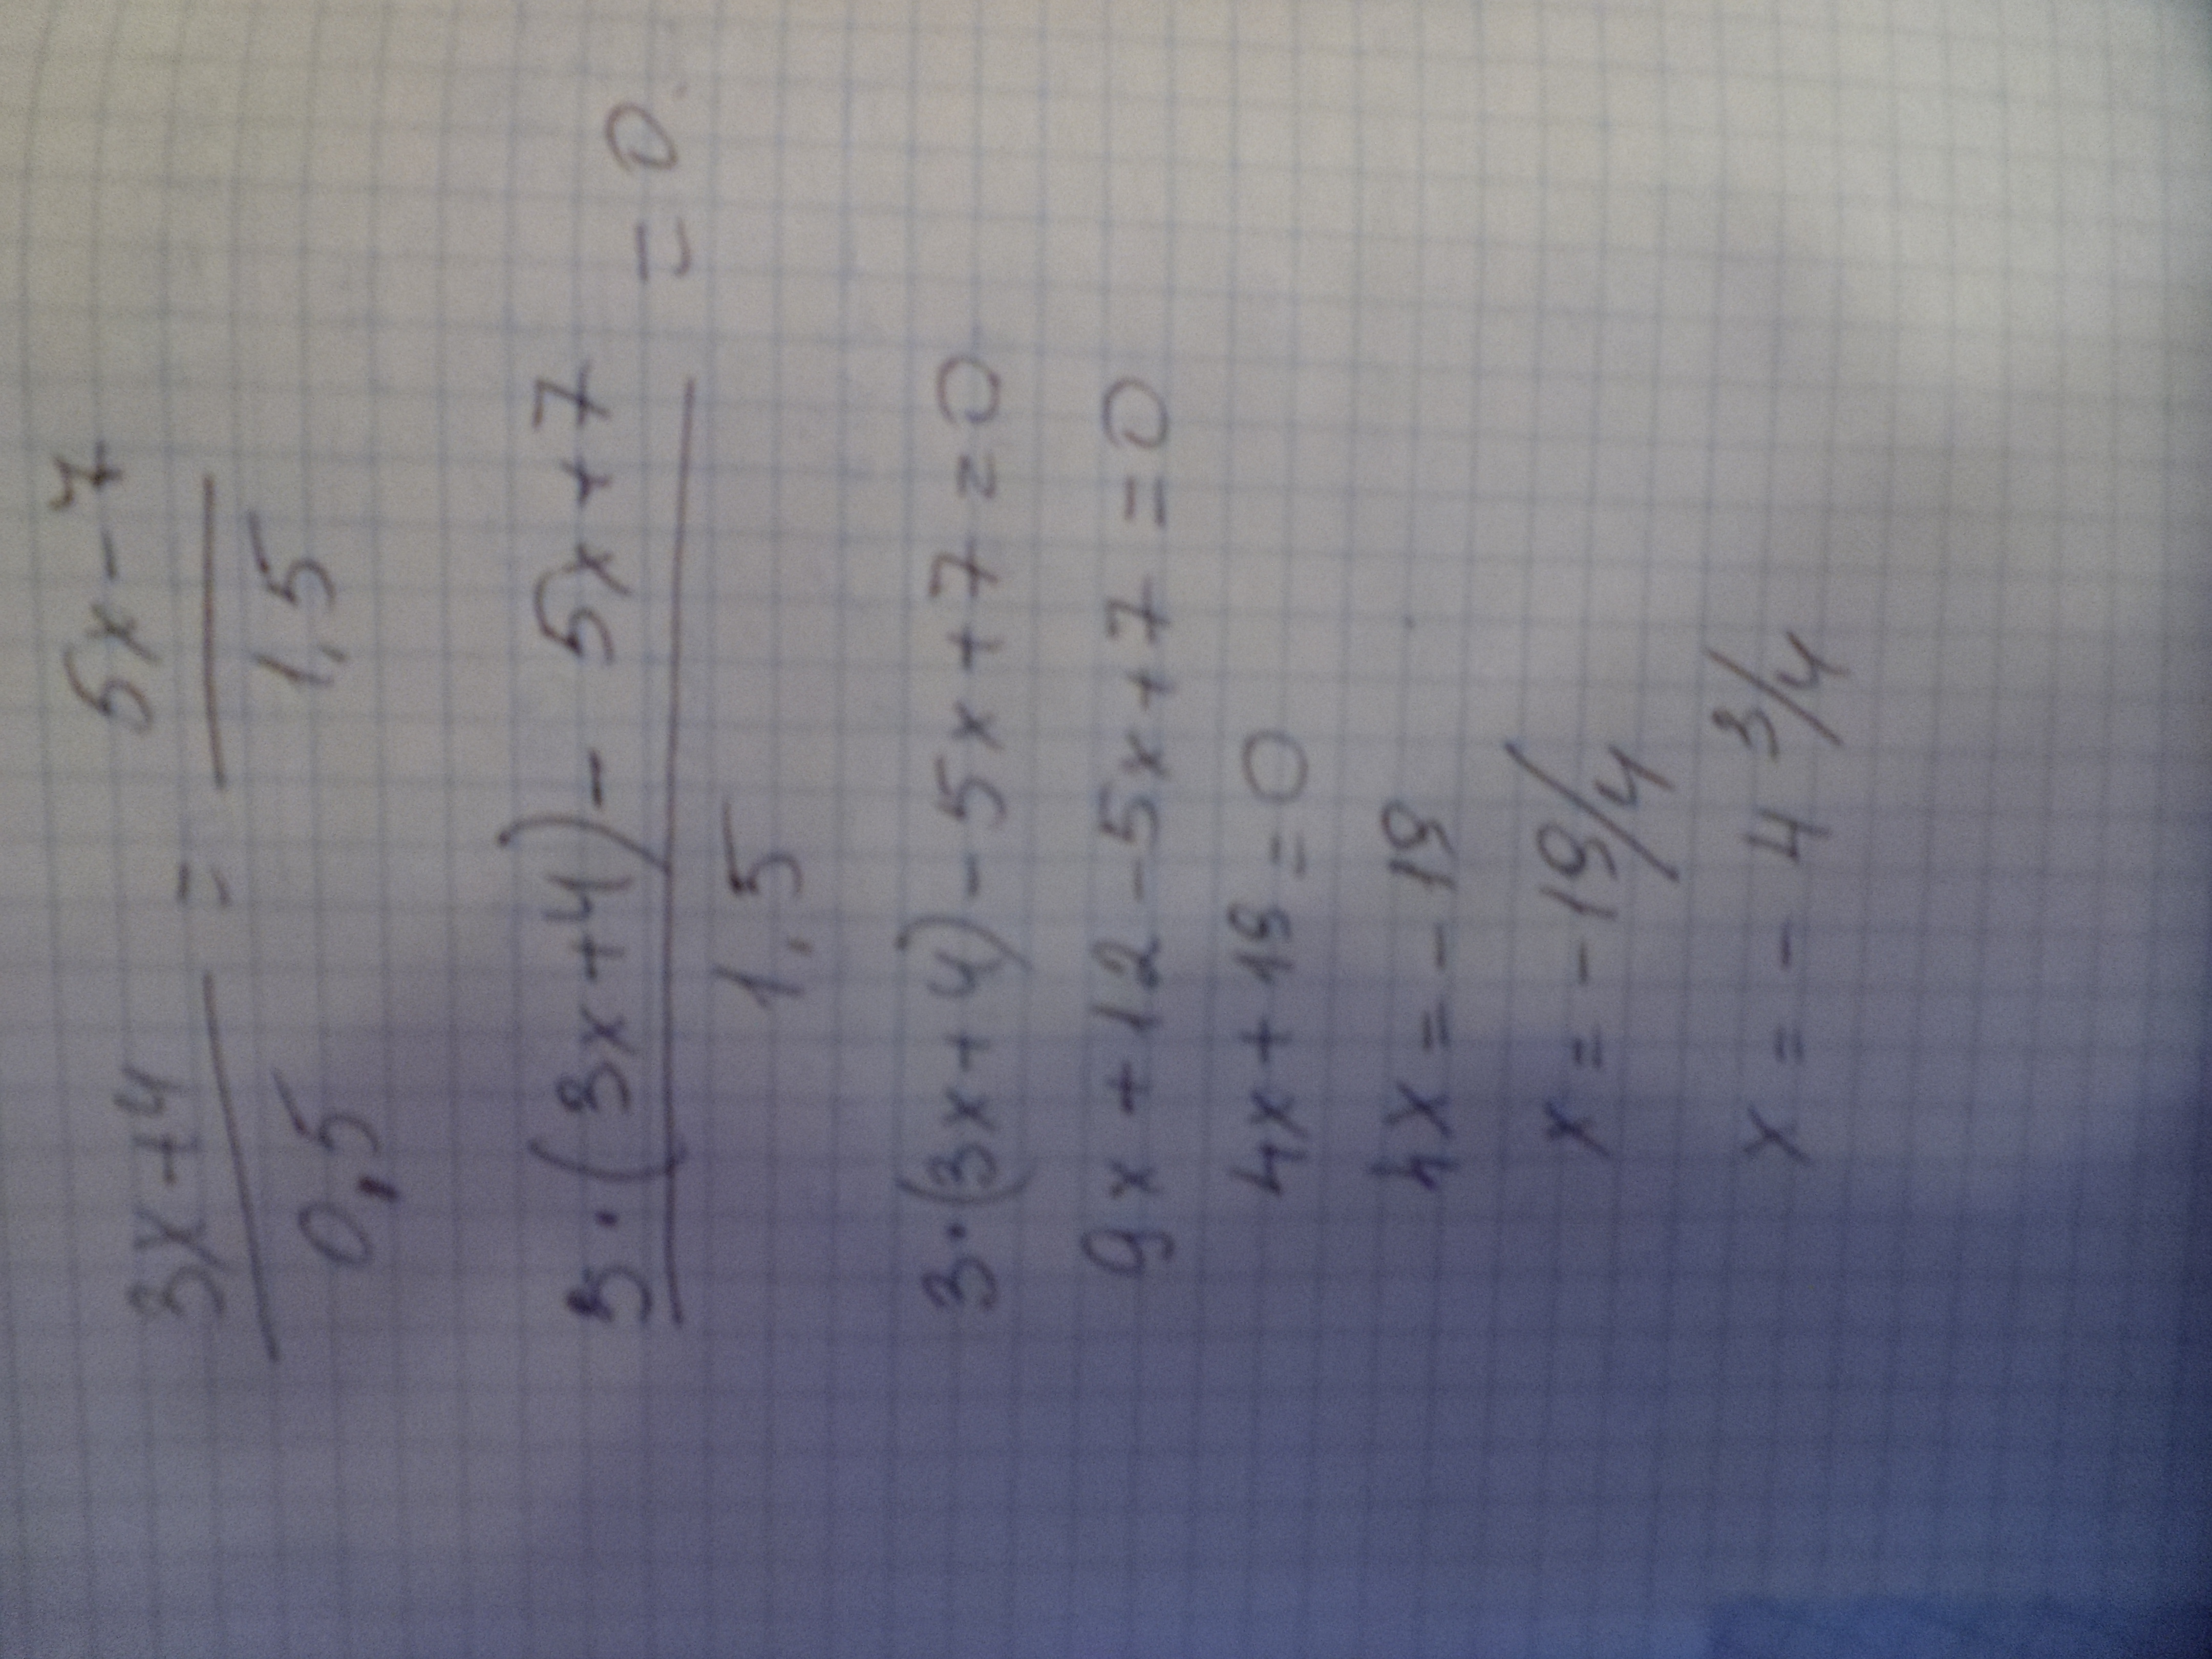 3x+4 = 5x-7
0,5 1,5
3·(3x+4)-5x+7 = 0
1,5
3·(3x+4)-5x+7=0
9x+12-5x+7=0
4x+19=0
4x=-19
x=-19/4
x=-4 3/4